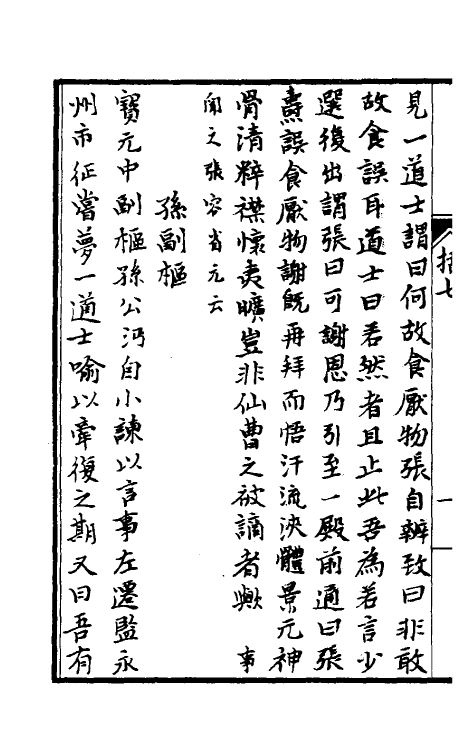 見一道士謂曰何故食厭物張自辨致曰非敢
故食誤耳道士曰若然者且止此吾為若言少
選後出謂張曰可謝恩乃引至一殿前通曰張
燾誤食厭物謝既再拜而悟汗流浹體景元神
骨清粹襟懷夷曠豈非仙曹之被謫者歟 事
聞之張容省元云
孫副樞
寶元中副樞孫公沔自小諫以言事左遷監永
州市征嘗夢一道士喻以牽復之期又曰吾有
括七
一